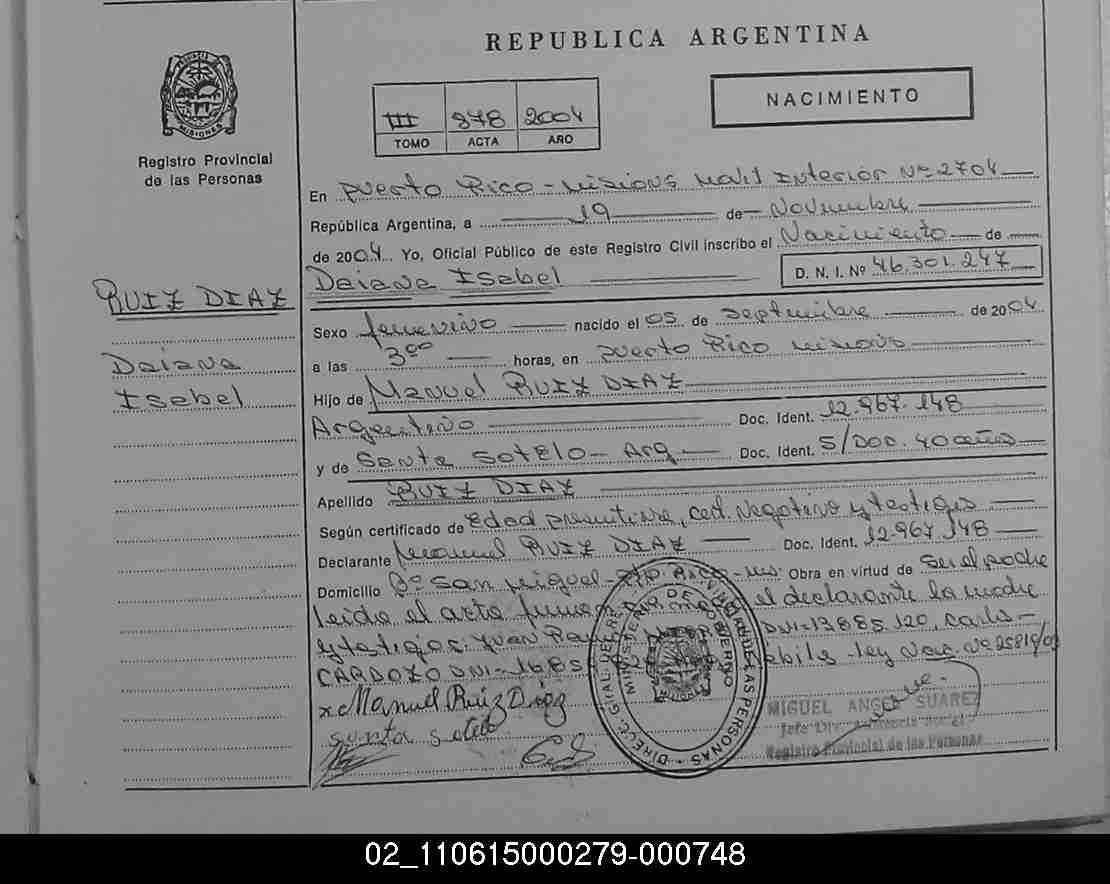 REPUBLICA ARGENTINA
MISIONES
Registro Provincial
de las Personas
III 378 2004
TOMO ACTA AÑO
NACIMIENTO
En Puerto Rico - Misiones Movil Interior Nº 2704
República Argentina, a 19 de Noviembre
de 2004. Yo, Oficial Público de este Registro Civil inscribo el Nacimiento de
Daiana Isabel
D. N. I. Nº 46.301.247
RUIZ DIAZ
Daiana
Isabel
Sexo femenino nacido el 05 de septiembre de 2004
a las 3⁰⁰ horas, en Puerto Rico Misiones
Hijo de Manuel RUIZ DIAZ
Argentino Doc. Ident. 12.967.148
y de Santa Sotelo - Arg Doc. Ident. S/DOC. 40 años
Apellido RUIZ DIAZ
Según certificado de Edad presuntiva, cert. Negativo y testigos
Declarante Manuel RUIZ DIAZ Doc. Ident. 12.967.148
Domicilio Bº San Miguel - Pto. Rico - Ms. Obra en virtud de Ser el padre
leida el acta firman el declarante la madre
y testigos: Juan DNI-13885.120, Carlos
CARDOZO DNI-1685 ley Nac. Nº 25819/03
x Manuel Ruiz Diaz
santa sotelo
DIRECC. GRAL. DEL REG. PROV. DE LAS PERSONAS
MINISTERIO DE GOBIERNO
MIGUEL ANGEL SUAREZ
Registro Provincial de las Personas
02_110615000279-000748